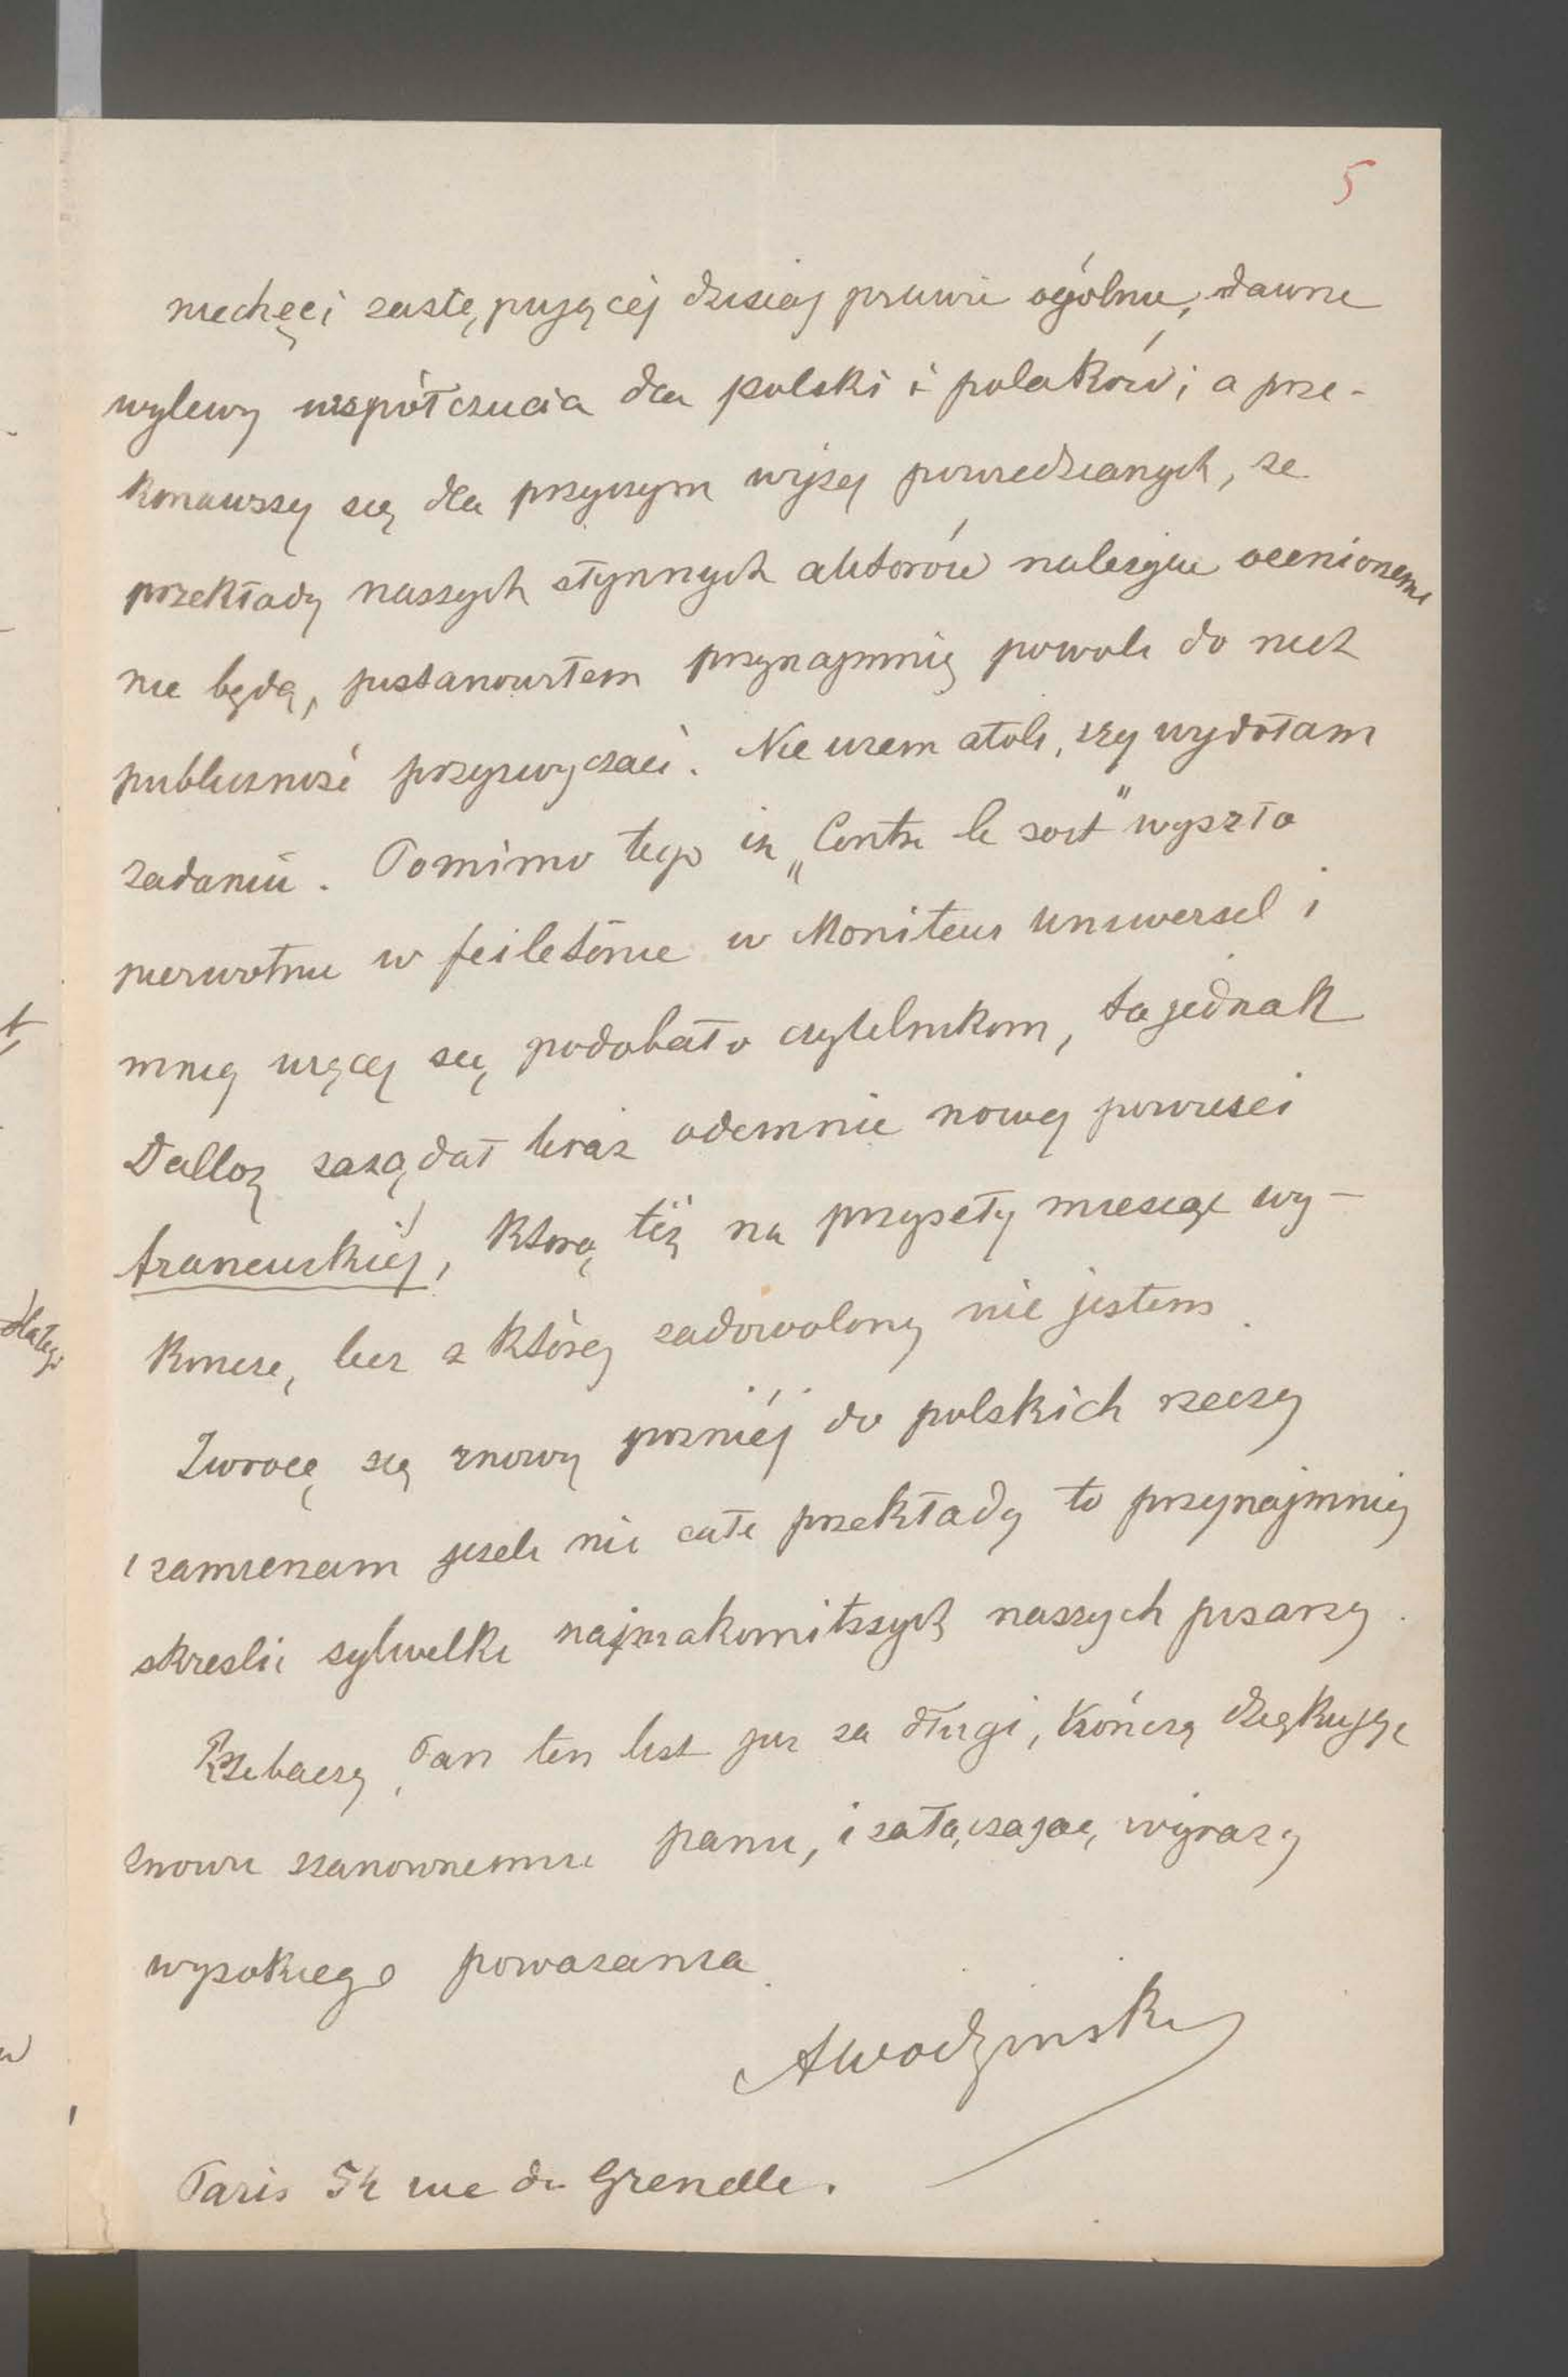 5
niechęci zastępującej dzisiaj prawie ogólnie, dawne
wylewy współczucia dla polski i polaków; a prze-
konawszy się dla przyczym wyżej powiedzianych, ze
przekłady naszych słynnych autorów należycie ocenionemi
nie będą, postanowiłem przynajmniej powoli do nich
publiczność przyzwyczaić. Nie wiem atoli, czy wydołam
zadaniu. Pomimo tego iz „Contre le sort" wyszło
pierwotnie w feiletonie w Moniteur Universel i
mniej więcej się podobało czytelnikom, to jednak
Dalloz zażądał teraz odemnie nowej powieści
francuskiéj, którą téż na przyszły miesiąc wy-
kończe, lecz z której zadowolony nie jestem.
Zwrocę się znowu pozniéj do polskich rzeczy
i zamierzam jezeli nie całe przekłady to przynajmniej
skreslic sylwetki najznakomitszych naszych pisarzy.
Pan ten list juz za długi, kończą dziękując
znowu szanownemu panu, i załączając wyrazy
wysokiego powazania.
AWodzinski
Paris 54 rue de Grenelle.
dlatego